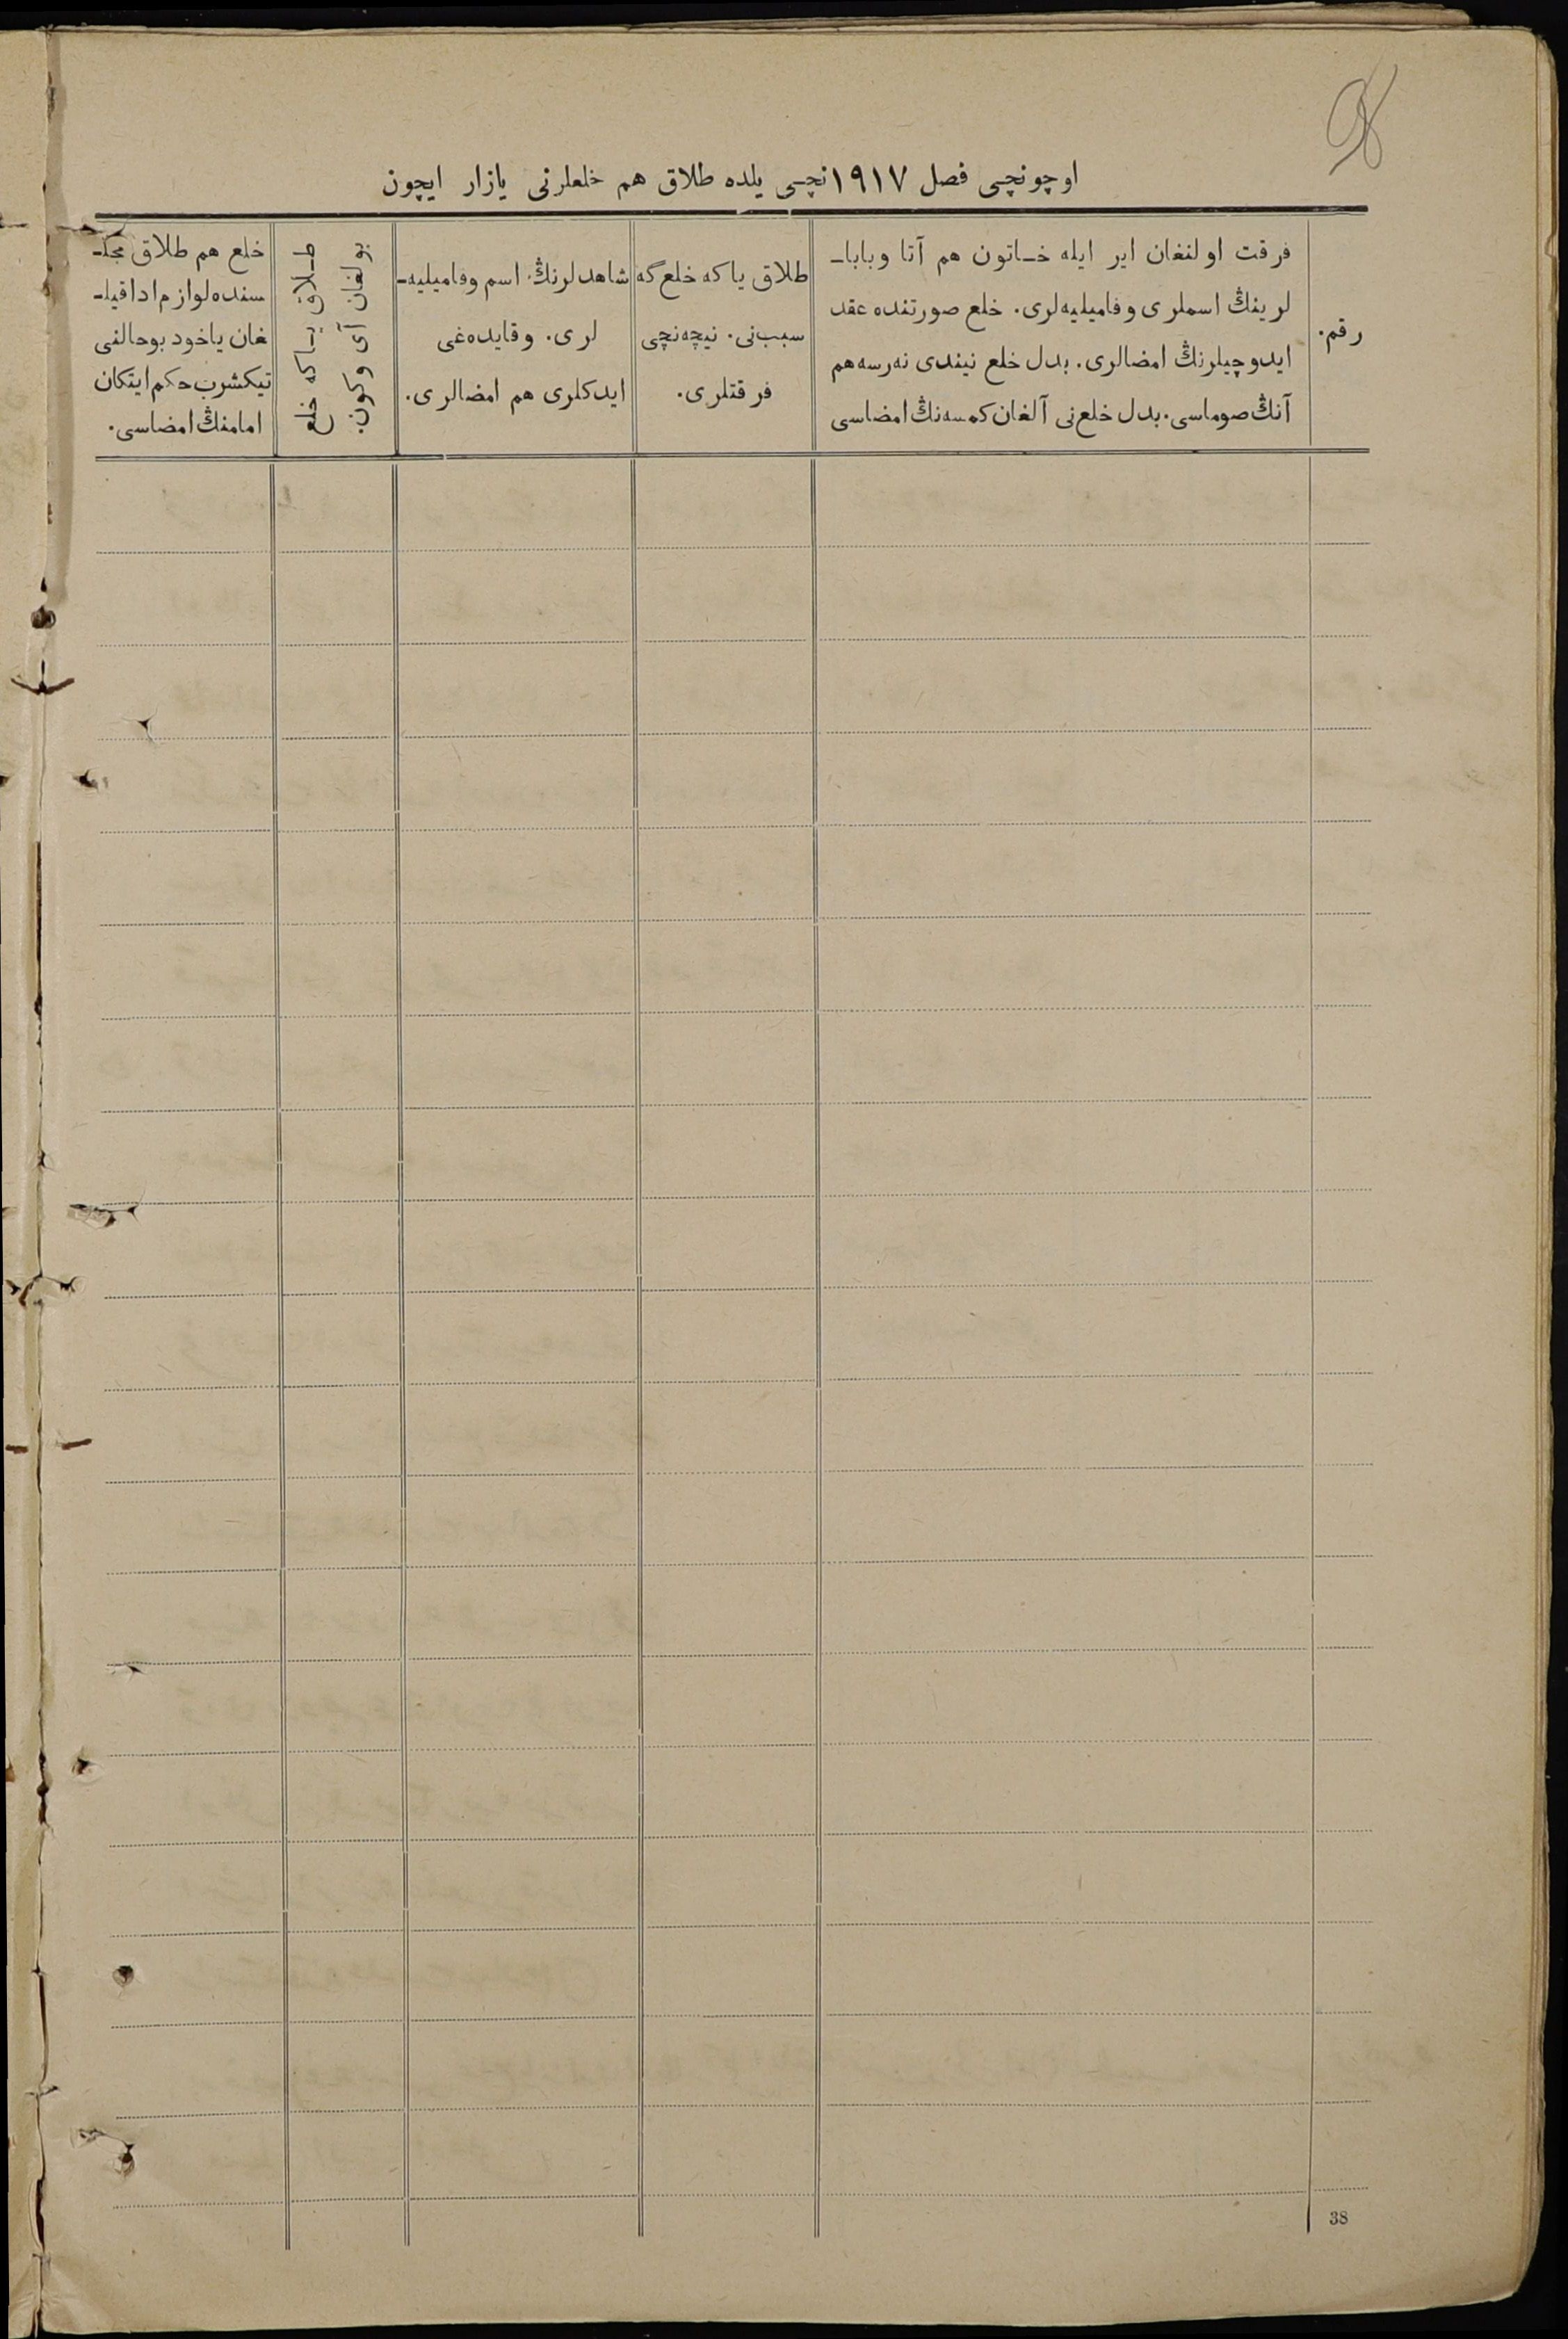 اوچونچی فصل ١٩١٧نچی یلده طلاق هم خلعلرنی یازار ایچون
رقم.
فرقت اولنغان ایر ایله خـاتون هم آتا وباباـ
لرینڭ اسملری وفامیلیه‌لری. خلع صورتنده عقد
ایدوچیلرنڭ امضالری. بدل خلع نیندی نه‌رسه هم
آنڭ صوماسی. بدل خلع‌نی آلغان کمسه‌نڭ امضاسی
طلاق یاکه خلع‌گه
سبب‌نی. نیچه‌نچی
فرقتلری.
شاهدلرنڭ اسم وفامیلیه‌ـ
لری. وقایده‌غی
ایدکلری هم امضالری.
طـلاق یـاکه خلع
بولغان آی وکون.
خلع هم طلاق مجلـ
سنده لوازم ادا قیلـ
غان یاخود بوحالنی
تیکشرب حکم ایتکان
امامنڭ امضاسی.
38